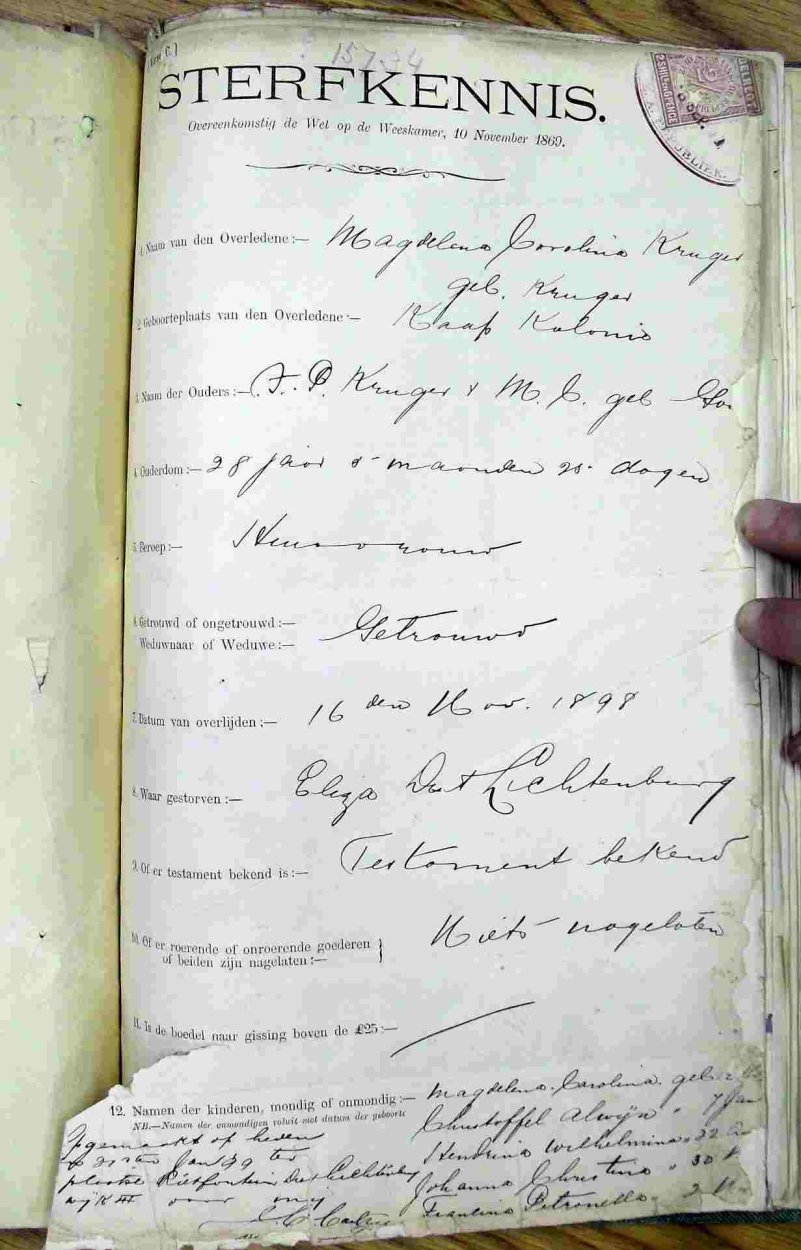 15734
STERFKENNIS.
Overeenkomstig de Wet op de Weeskamer, 10 November 1869.
1. Naam van den Overledene:— Magdelena Carolina Kruger
geb. Kruger
2. Geboorteplaats van den Overledene:— Kaap Kolonie
3. Naam der Ouders:— J. P. Kruger & M. C. geb
4. Ouderdom:— 28 jaar 5 maanden 25 dagen
5. Beroep:— Huisvrouw
6. Getrouwd of ongetrouwd:—
Weduwnaar of Weduwe:— Getrouwd
7. Datum van overlijden:— 16 den Nov. 1898
8. Waar gestorven:— Eliza Dist Lichtenburg
9. Of er testament bekend is:— Testament bekend
10. Of er roerende of onroerende goederen
of beiden zijn nagelaten:— Niets nagelaten
11. Is de boedel naar gissing boven de £25:—
12. Namen der kinderen, mondig of onmondig:— Magdelena Carolina geb
NB.—Namen der onmondigen voluit met datum der geboorte
Christoffel Alwijn " 7 Jan
Hendrina Wilhelmina "
Johanna Christina " 30
Francina Petronella "
opgemaakt op heden
Jan 99 ter
plaatse Rietfontein Dist Lichtenburg
wijk III voor mij